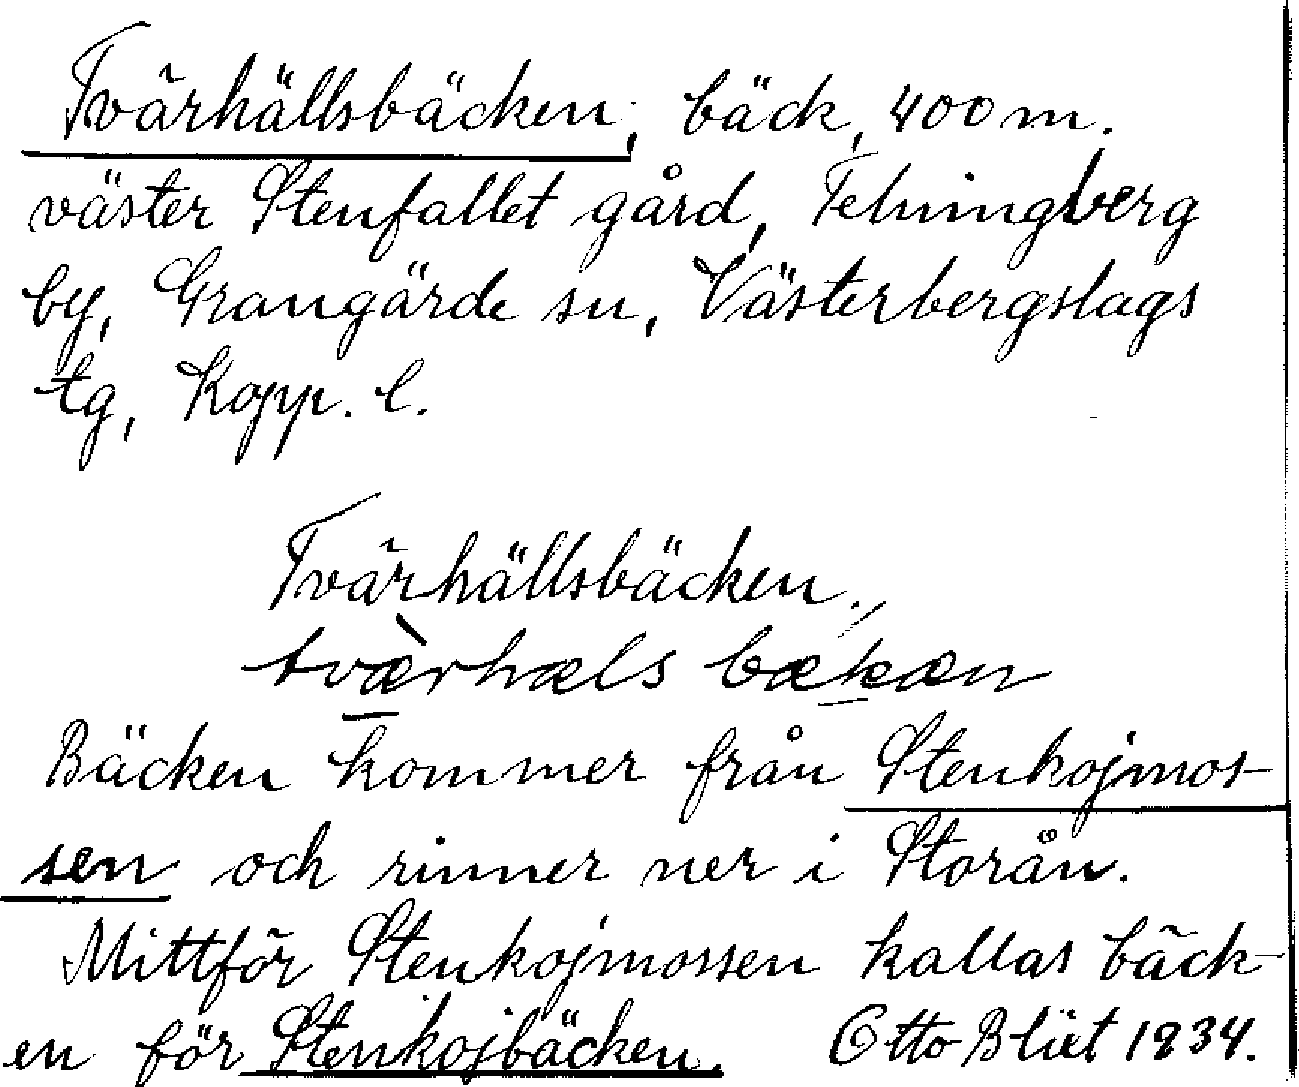 Tvärhällsbäcken, bäck, 400 m.
väster Stenfallet gård, Telningberg
by, Grangärde sn, Västerbergslags
tg, Kopp. l.
Tvärhällsbäcken.,
tvæ̀rhæls bækæn
Bäcken kommer från Stenkojmos-
sen och rinner ner i Storån.
Mittför Stenkojmossen kallas bäck-
en för Stenkojbäcken. Otto Blixt 1934.